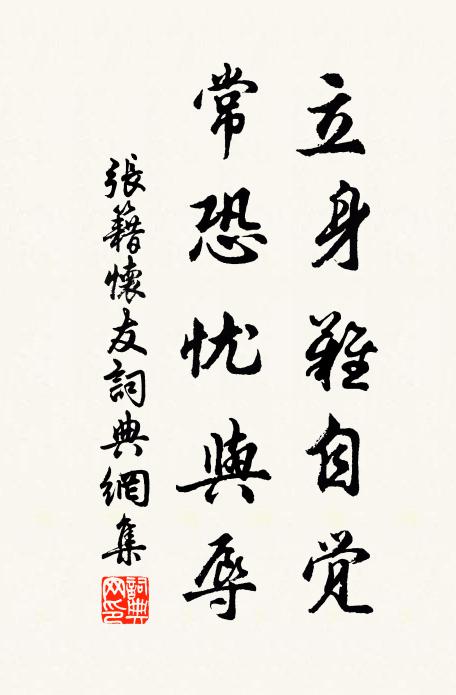 立身难自觉
常恐忧與辱
張籍懷友詞典網集
詞典網印